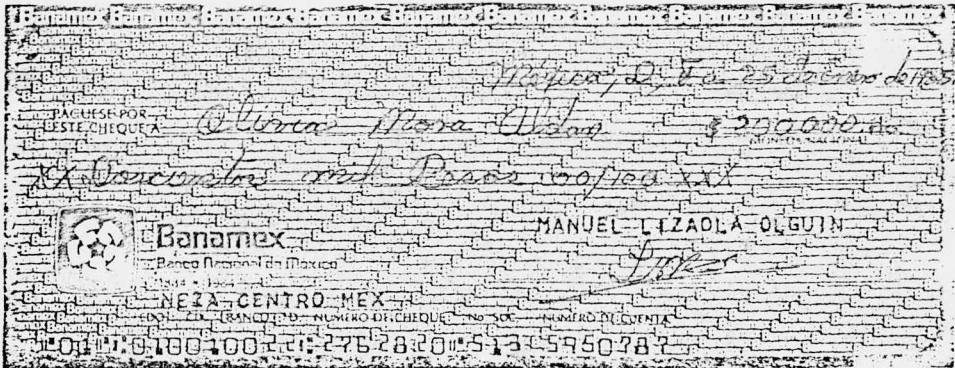 Banamex Banamex Banamex Banamex Banamex Banamex Banamex Banamex Banamex
México, D, F a 25 de Enero de 1985
PAGUESE POR
ESTE CHEQUE A Olivia Mora Aldan $ 200000.00
MONEDA NACIONAL
XX Doscientos mil Pesos 00/100 XXX
MANUEL LIZAOLA OLGUIN
Banamex
Banco Nacional de Mexico
1884 • 1984
NEZA CENTRO MEX
NUMERO DE CHEQUE No SOC NUMERO DE CUENTA